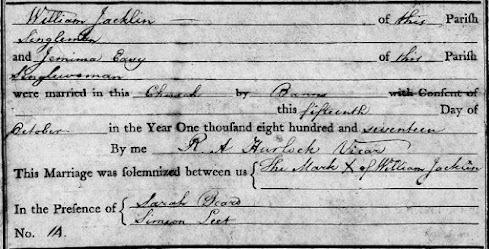 William Jacklin of this Parish
Singleman
and Jemima Easy of this Parish
Singlewoman
were married in this Church by Banns with Consent of
this fifteenth Day of
October in the Year One thousand eight hundred and seventeen
By me R A Hurlock Vicar
This Marriage was solemnized between us { The Mark X of William Jacklin
In the Presence of { Sarah Beard
Simeon Leet
No. 14.